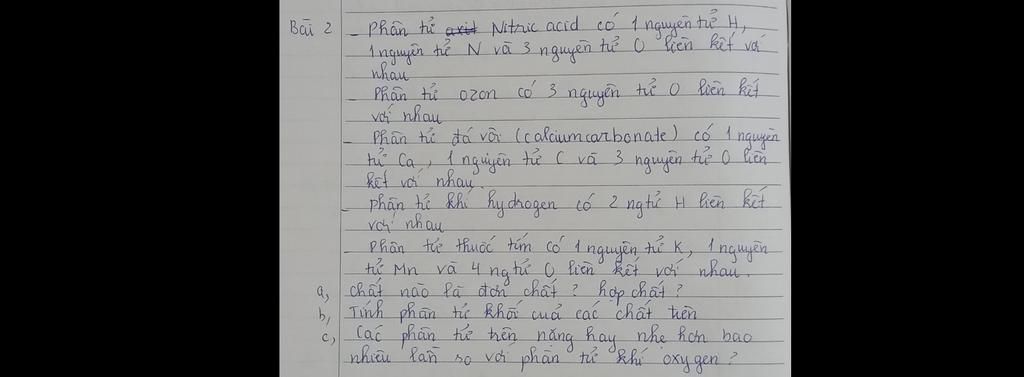 Bài 2 - Phân tử axit Nitric acid có 1 nguyên tử H,
1 nguyên tử N và 3 nguyên tử O liên kết với
nhau
- Phân tử ozon có 3 nguyên tử O liên kết
với nhau
- Phân tử đá vôi (calcium carbonate) có 1 nguyên
tử Ca, 1 nguyên tử C và 3 nguyên tử O liên
kết với nhau.
- phân tử khí hydrogen có 2 ngtử H liên kết
với nhau
- Phân tử thuốc tím có 1 nguyên tử K, 1 nguyên
tử Mn và 4 ngtử O liên kết với nhau.
a, chất nào là đơn chất? hợp chất?
b, Tính phân tử khối cuả các chất trên
c, Các phân tử trên nặng hay nhẹ hơn bao
nhiêu lần so với phân tử khí oxygen?